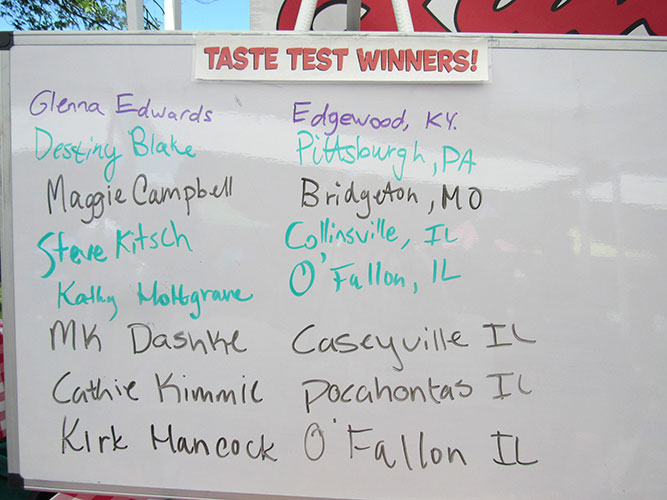 TASTE TEST WINNERS!
Glenna Edwards Edgewood, KY.
Destiny Blake Pittsburgh, PA
Maggie Campbell Bridgeton, MO
Steve Kitsch Collinsville, IL
Kathy Mottgrave O'Fallon, IL
MK Dashke Caseyville IL
Cathie Kimmil Pocahontas IL
Kirk Hancock O'Fallon IL